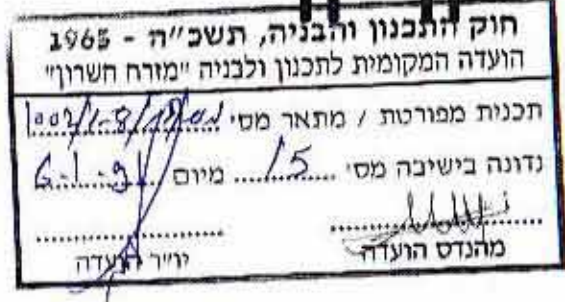 חוק התכנון והבניה, תשכ״ה - 1965
הועדה המקומית לתכנון ולבניה "מזרח השרון"
תכנית מפורטת / מתאר מס׳
נדונה בישיבה מס׳ 15 מיום 6-1-91
מהנדס הועדה
יו״ר הועדה